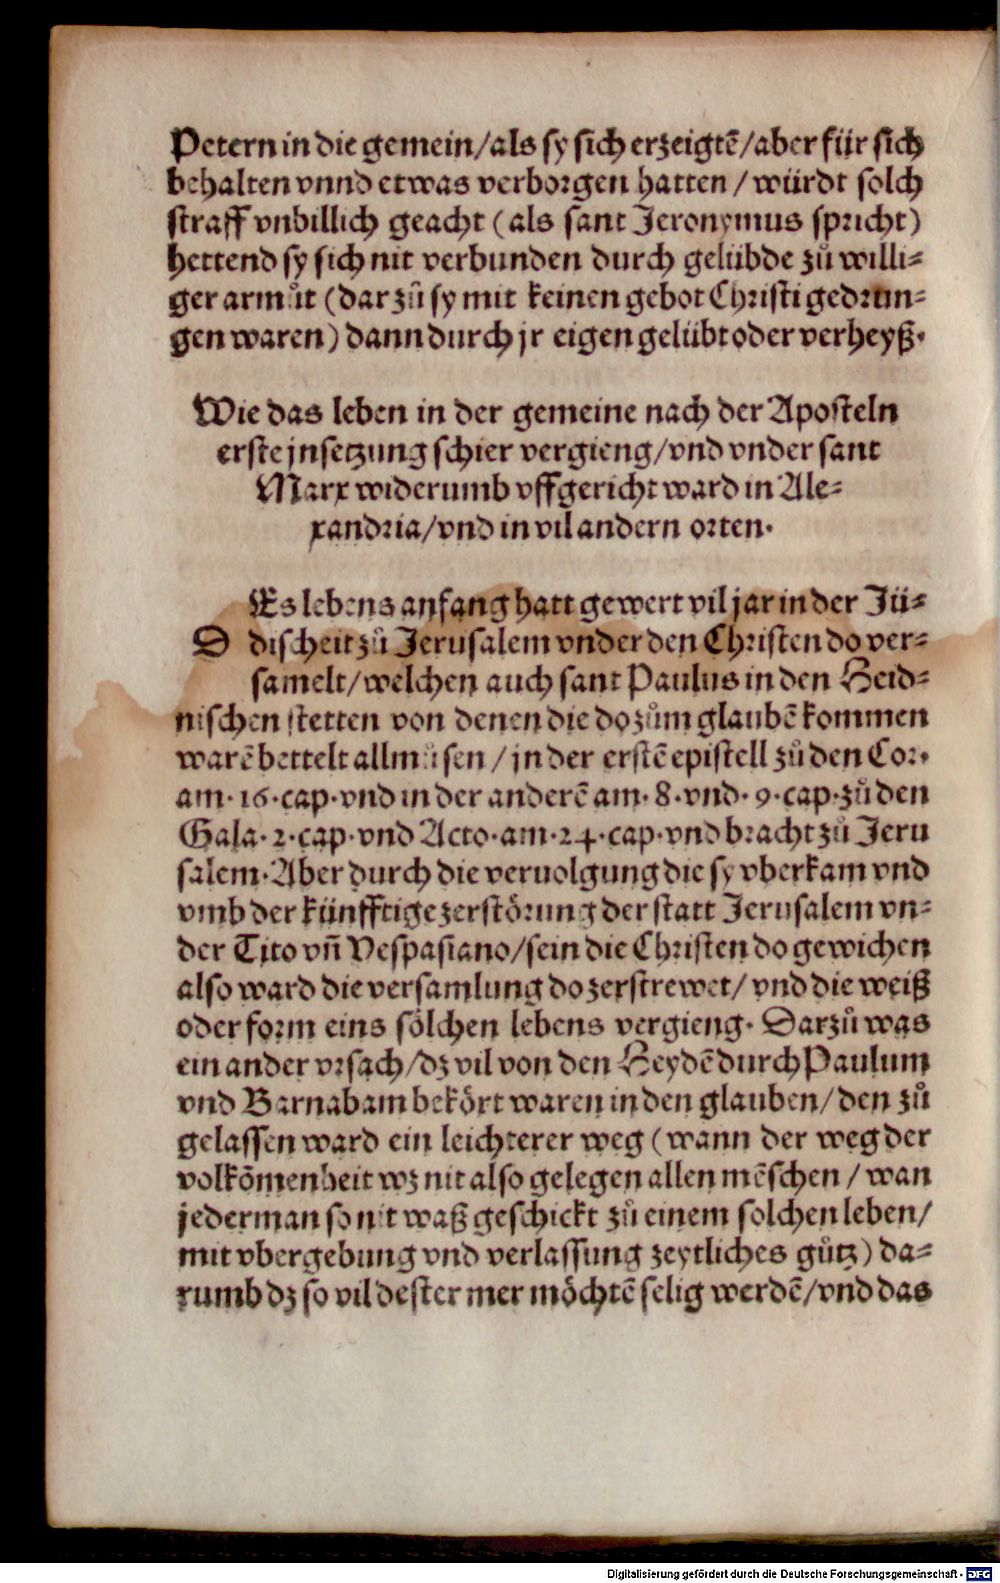 Petern in die gemein/als sy sich erzeigtē/aber für sich
behalten vnnd etwas verborgen hatten / würdt solch
straff vnbillich geacht (als sant Jeronymus spricht)
hettend sy sich nit verbunden durch gelübde zů willi⸗
ger armůt (dar zů sy mit keinen gebot Christi gedrun⸗
gen waren) dann durch jr eigen gelübt oder verheyß.
Wie das leben in der gemeine nach der Aposteln
erste jnsetzung schier vergieng/vnd vnder sant
Marx widerumb vffgericht ward in Ale⸗
xandria/vnd in vil andern orten.
Es lebens anfang hatt gewert vil jar in der Jü⸗
D discheit zů Jerusalem vnder den Christen do ver⸗
samelt/welchen auch sant Paulus in den Heid⸗
nischen stetten von denen die do zům glaubē kommen
warē bettelt allmůsen / jn der erstē epistell zů den Cor.
am. 16. cap. vnd in der anderē am. 8. vnd. 9. cap. zů den
Gala. 2. cap. vnd Acto. am. 24. cap. vnd bracht zů Jeru
salem. Aber durch die veruolgung die sy vberkam vnd
vmb der künfftige zerstörung der statt Jerusalem vn⸗
der Tito vñ Vespasiano/sein die Christen do gewichen
also ward die versamlung do zerstrewet/ vnd die weiß
oder form eins sölchen lebens vergieng. Darzů was
ein ander vrsach/dz vil von den Heydē durch Paulum
vnd Barnabam bekört waren in den glauben/ den zů
gelassen ward ein leichterer weg (wann der weg der
volkōmenheit wz nit also gelegen allen mēschen / wan
jederman so nit waß geschickt zů einem solchen leben/
mit vbergebung vnd verlassung zeytliches gůtz) da⸗
rumb dz so vil dester mer möchtē selig werdē/vnd das
Digitalisierung gefördert durch die Deutsche Forschungsgemeinschaft - DFG